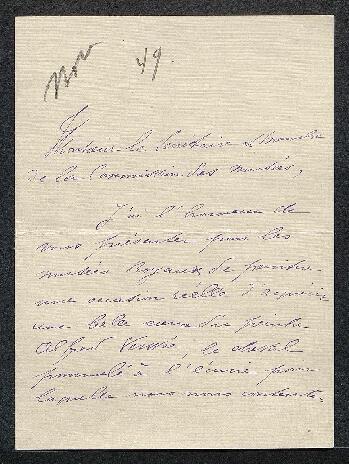 Non
49.
Monsieur le Secrétaire Membre
de la Commission des musées,
J'ai l'honneur de
vous présenter pour les
musées Royaux de peinture
une occasion réelle d'acquérir
une belle œuvre du peintre
Alfred Verwée, le cheval
pommelé à l'écurie pour
laquelle nous nous contente-